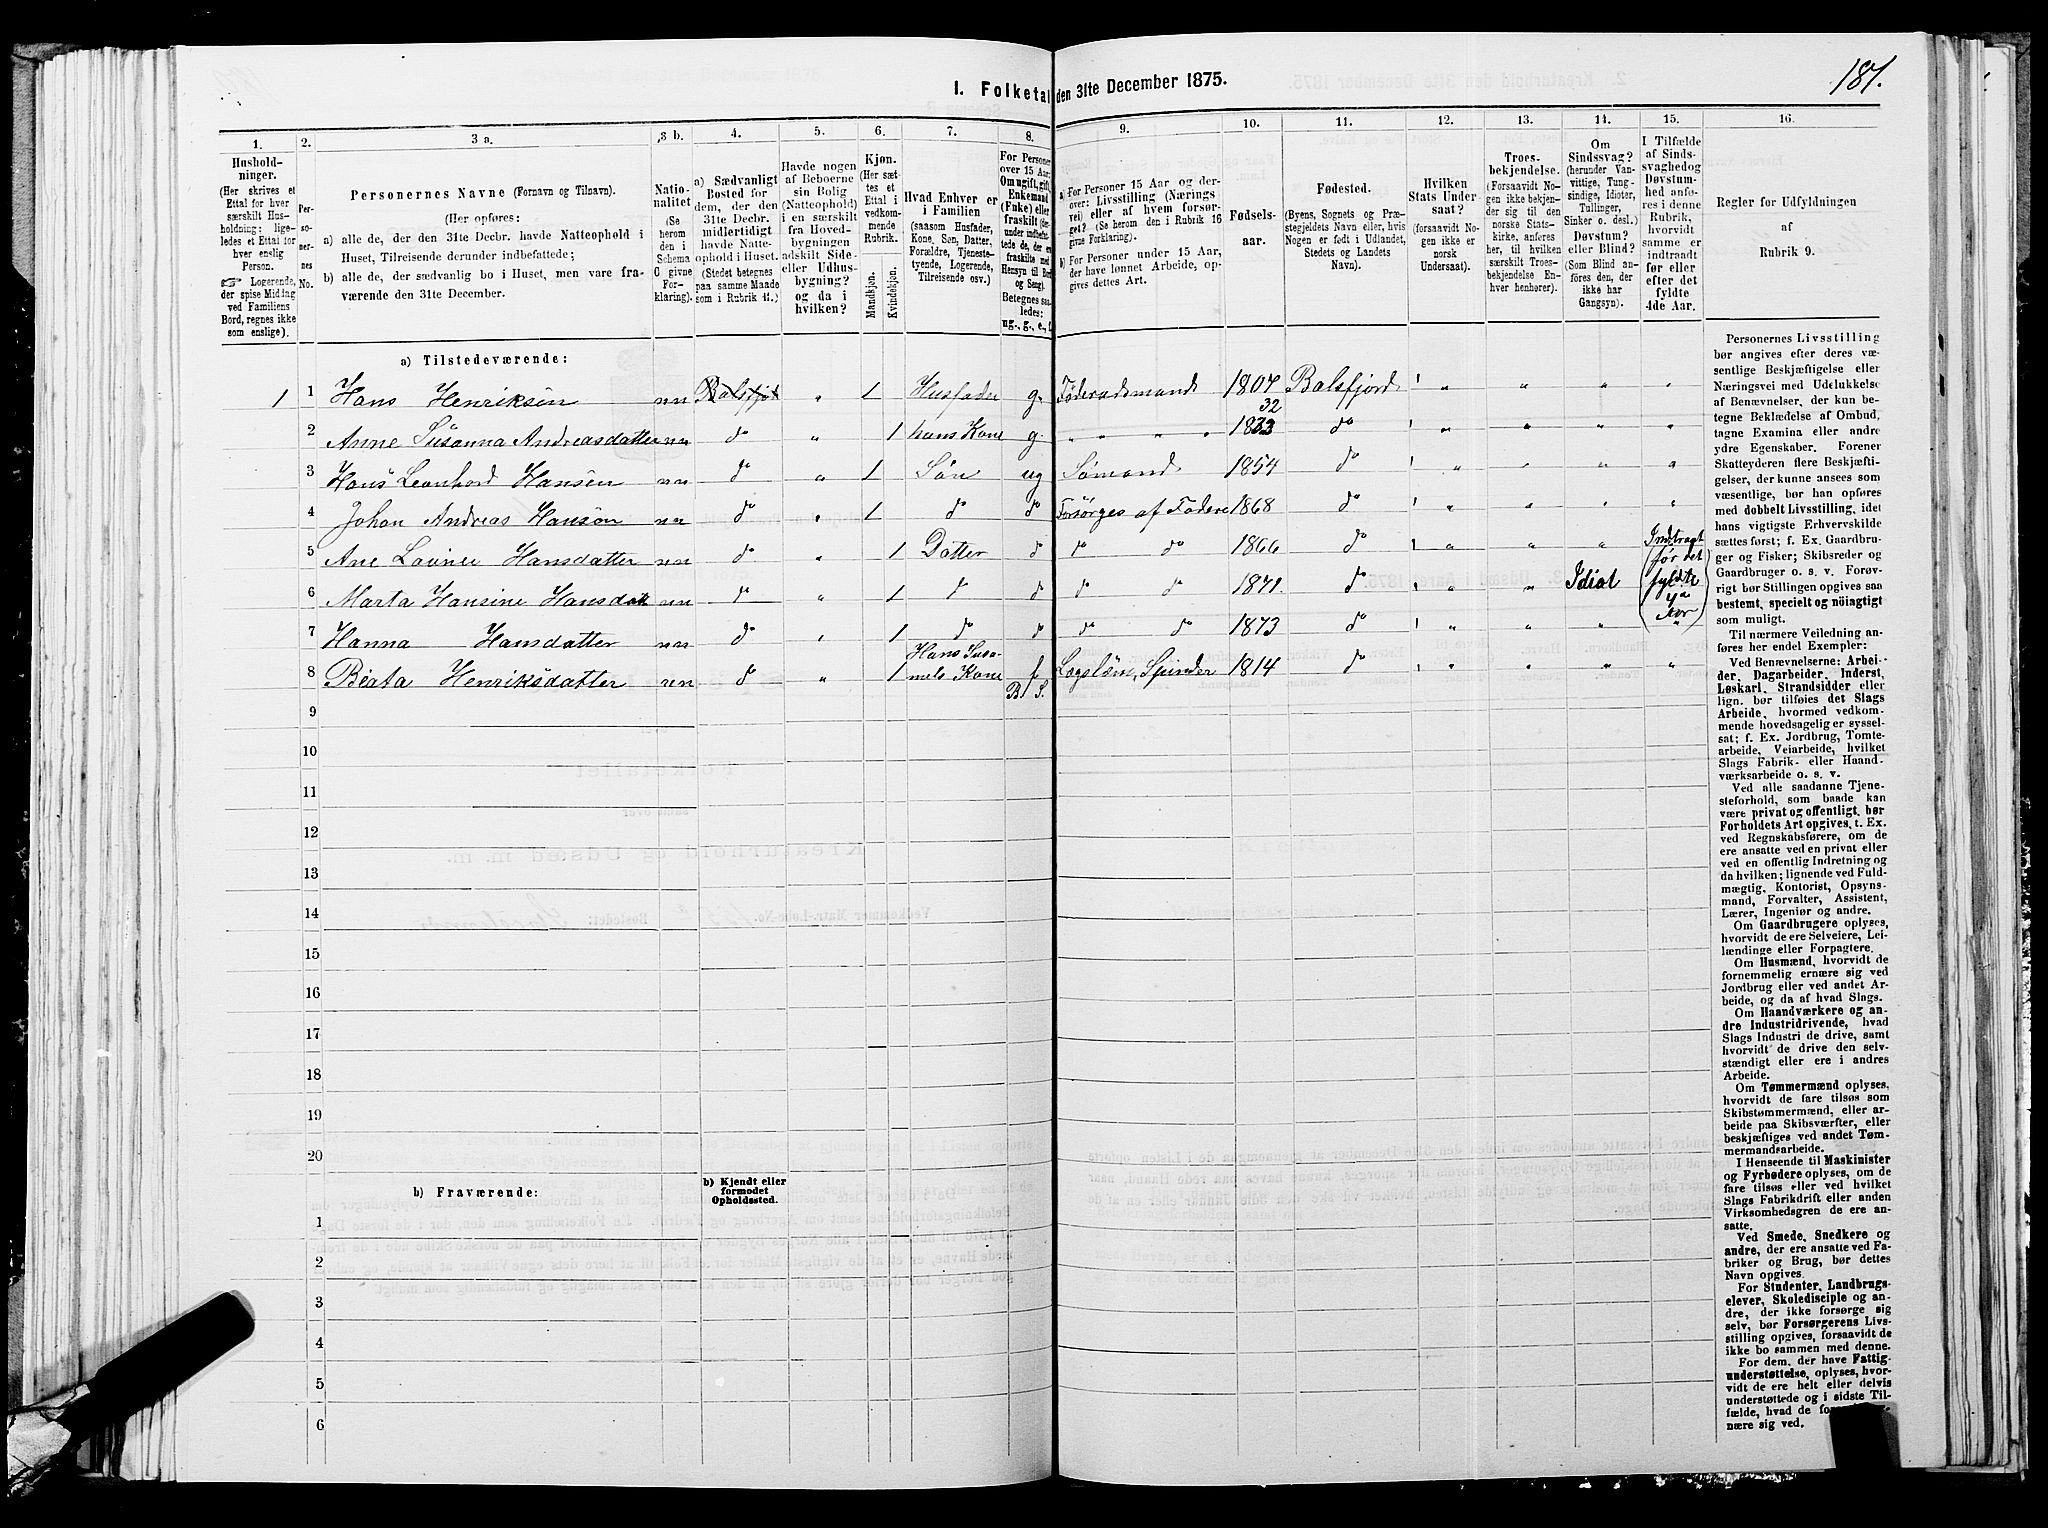 187.
I. Folketal den 31te December 1875.
1.
Hushold-
ninger.
(Her skrives et
Ettal for hver
særskilt Hus-
holdning: lige-
ledes et Ettal for
hver enslig
Person.
Logerende,
der spise Middag
ved Familiens
Bord, regnes ikke
som enslige).
2.
Per-
soner-
nes
No.
3 a.
Personernes Navne (Fornavn og Tilnavn).
(Her opføres:
a) alle de, der den 31te Decbr. havde Natteophold i
Huset, Tilreisende derunder indbefattede;
b) alle de, der sædvanlig bo i Huset, men vare fra-
værende den 31te December.
3 b.
Natio-
nalitet
(Se
herom
den i
Schema
C givne
For-
klaring).
4.
a) Sædvanligt
Bosted for
dem, der den
31te Decbr.
midlertidigt
havde Natte-
ophold i Huset.
(Stedet betegnes
paa samme Maade
som i Rubrik 11.)
5.
Havde nogen
af Beboerne
sin Bolig
(Natteophold)
i en særskilt
fra Hoved-
bygningen
adskilt Side-
eller Udhus-
bygning?
og da i
hvilken?
6.
Kjøn.
(Her sæt-
tes et
Ettal i
vedkom-
mende
Rubrik.
Mandkjøn.
Kvindekjøn.
7.
Hvad Enhver er
i Familien
(saasom Husfader,
Kone, Søn, Datter,
Forældre, Tjeneste-
tyende, Logerende,
Tilreisende osv.)
8.
For Personer
over 15 Aar:
Om ugift, gift,
Enkemand
(Enke) eller
fraskilt (der-
under indbefat-
tede de, der ere
fraskilte med
Hensyn til Bord
og Seng).
Betegnes saa-
ledes:
ug., g., e., f.
9.
a) For Personer 15 Aar og der-
over: Livsstilling (Nærings-
vei) eller af hvem forsør-
get? (Se herom den i Rubrik 16
givne Forklaring).
b) For Personer under 15 Aar,
der have lønnet Arbeide, op-
gives dettes Art.
10.
Fødsels-
aar.
11.
Fødested.
(Byens, Sognets og Præ-
stegjeldets Navn, eller, hvis
Nogen er født i Udlandet,
Stedets og Landets
Navn).
12.
Hvilken
Stats Under-
saat?
(forsaavidt No-
gen ikke er
norsk
Undersaat).
13.
Troes-
bekjendelse.
(Forsaavidt No-
gen ikke bekjen-
der sig til den
norske Stats-
kirke, anføres
her, til hvilken
særskilt Troes-
bekjendelse En-
hver henhører).
14.
Om
Sindssvag?
(herunder Van-
vittige, Tung-
sindige, Idioter,
Tullinger,
Sinker o. desl.)
Døvstum?
eller Blind?
(Som Blind an-
føres den, der
ikke har
Gangsyn).
15.
I Tilfælde
af Sinds-
svaghed og
Døvstum-
hed anfø-
res i denne
Rubrik,
hvorvidt
samme er
indtraadt
før eller
efter det
fyldte
4de Aar.
16.
Regler for Udfyldningen
af
Rubrik 9.
a) Tilstedeværende:
1 1 Hans Henriksen nn Balsfjord " 1 Husfader g. Føderaadsmand 1807 Balsfjord " " " "
32
2 Anne Susanna Andreasdatter nn do " 1 hans Kone g. " " " " 1833 do " " " "
3 Hans Leonhard Hansen nn do " 1 Søn ug Sømand 1854 do " " " "
4 Johan Andreas Hansen nn do " 1 do do Forsørges af Fadere 1868 do " " " "
5 Ane Lovine Hansdatter nn do " 1 Datter do do do 1866 do " " " Indtraat
6 Marta Hansine Hansdatt nn do " 1 do do do do 1871. do " " Idiot (før det fyldte 4de Aar)
7 Hanna Hansdatter nn do " 1 do do do do 1873 do " " " "
8 Beata Henriksdatter nn do " 1 Hans Susa- mels Kone f B. S. Logskøn, Spinder 1814 do " " " "
9
10
11
12
13
14
15
16
17
18
19
20
b) Fraværende:
b) Kjendt eller
formodet
Opholdssted.
1
2
3
4
5
6
Personernes Livsstilling
bør angives efter deres væ-
sentlige Beskjæftigelse eller
Næringsvei med Udelukkelse
af Benævnelser, der kun be-
tegne Beklædelse af Ombud,
tagne Examina eller andre
ydre Egenskaber. Forener
Skatteyderen flere Beskjæfti-
gelser, der kunne ansees som
væsentlige, bør han opføres
med dobbelt Livsstilling, idet
hans vigtigste Erhvervskilde
sættes først; f. Ex. Gaardbru-
ger og Fisker; Skibsreder og
Gaardbruger o. s. v. Forøv-
rigt bør Stillingen opgives saa
bestemt, specielt og nöiagtigt
som muligt.
Til nærmere Veiledning an-
føres her endel Exempler:
Ved Benævnelserne: Arbei-
der, Dagarbeider, Inderst,
Løskarl, Strandsidder eller
lign. bør tilføies det Slags
Arbeide, hvormed vedkom-
mende hovedsagelig er syssel-
sat; f. Ex. Jordbrug, Tomte-
arbeide, Veiarbeide, hvilket
Slags Fabrik- eller Haand-
værksarbeide o. s. v.
Ved alle saadanne Tjene-
steforhold, som baade kan
være privat og offentligt, bør
Forholdets Art opgives, t. Ex.
ved Regnskabsførere, om de
ere ansatte ved en privat eller
ved en offentlig Indretning og
da hvilken; lignende ved Fuld-
mægtig, Kontorist, Opsyns-
mand, Forvalter, Assistent,
Lærer, Ingeniør og andre.
Om Gaardbrugere oplyses,
hvorvidt de ere Selveiere, Lei-
lændinge eller Forpagtere.
Om Husmænd, hvorvidt de
fornemmelig ernære sig ved
Jordbrug eller ved andet Ar-
beide, og da af hvad Slags.
Om Haandværkere og an-
dre Industridrivende, hvad
Slags Industri de drive, samt
hvorvidt de drive den selv-
stændigt eller ere i andres
Arbeide.
Om Tømmermænd oplyses,
hvorvidt de fare tilsøs som
Skibstømmermænd, eller ar-
beide paa Skibsværfter, eller
beskjæftiges ved andet Tøm-
mermandsarbeide.
I Henseende til Maskinister
og Fyrbødere oplyses, om de
fare tilsøs eller ved hvilket
Slags Fabrikdrift eller anden
Virksomhedsgren de ere an-
satte.
Ved Smede, Snedkere og
andre, der ere ansatte ved Fa-
briker og Brug, bør dettes
Navn opgives.
For Studenter, Landbrugs-
elever, Skoledisciple og an-
dre, der ikke forsørge sig
selv, bør Forsørgerens Livs-
stilling opgives, forsaavidt de
ikke bo sammen med denne.
For dem, der have Fattig-
understøttelse, oplyses, hvor-
vidt de ere helt eller delvis
understøttede og i sidste Til-
fælde, hvad de
nære sig ved.